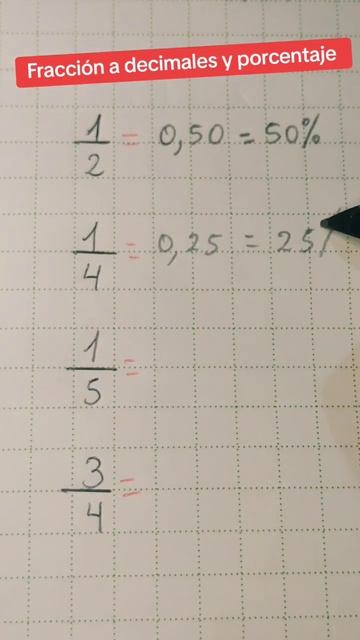 Fracción a decimales y porcentaje
1/2 = 0,50 = 50%
1/4 = 0,25 = 25/
1/5 =
3/4 =